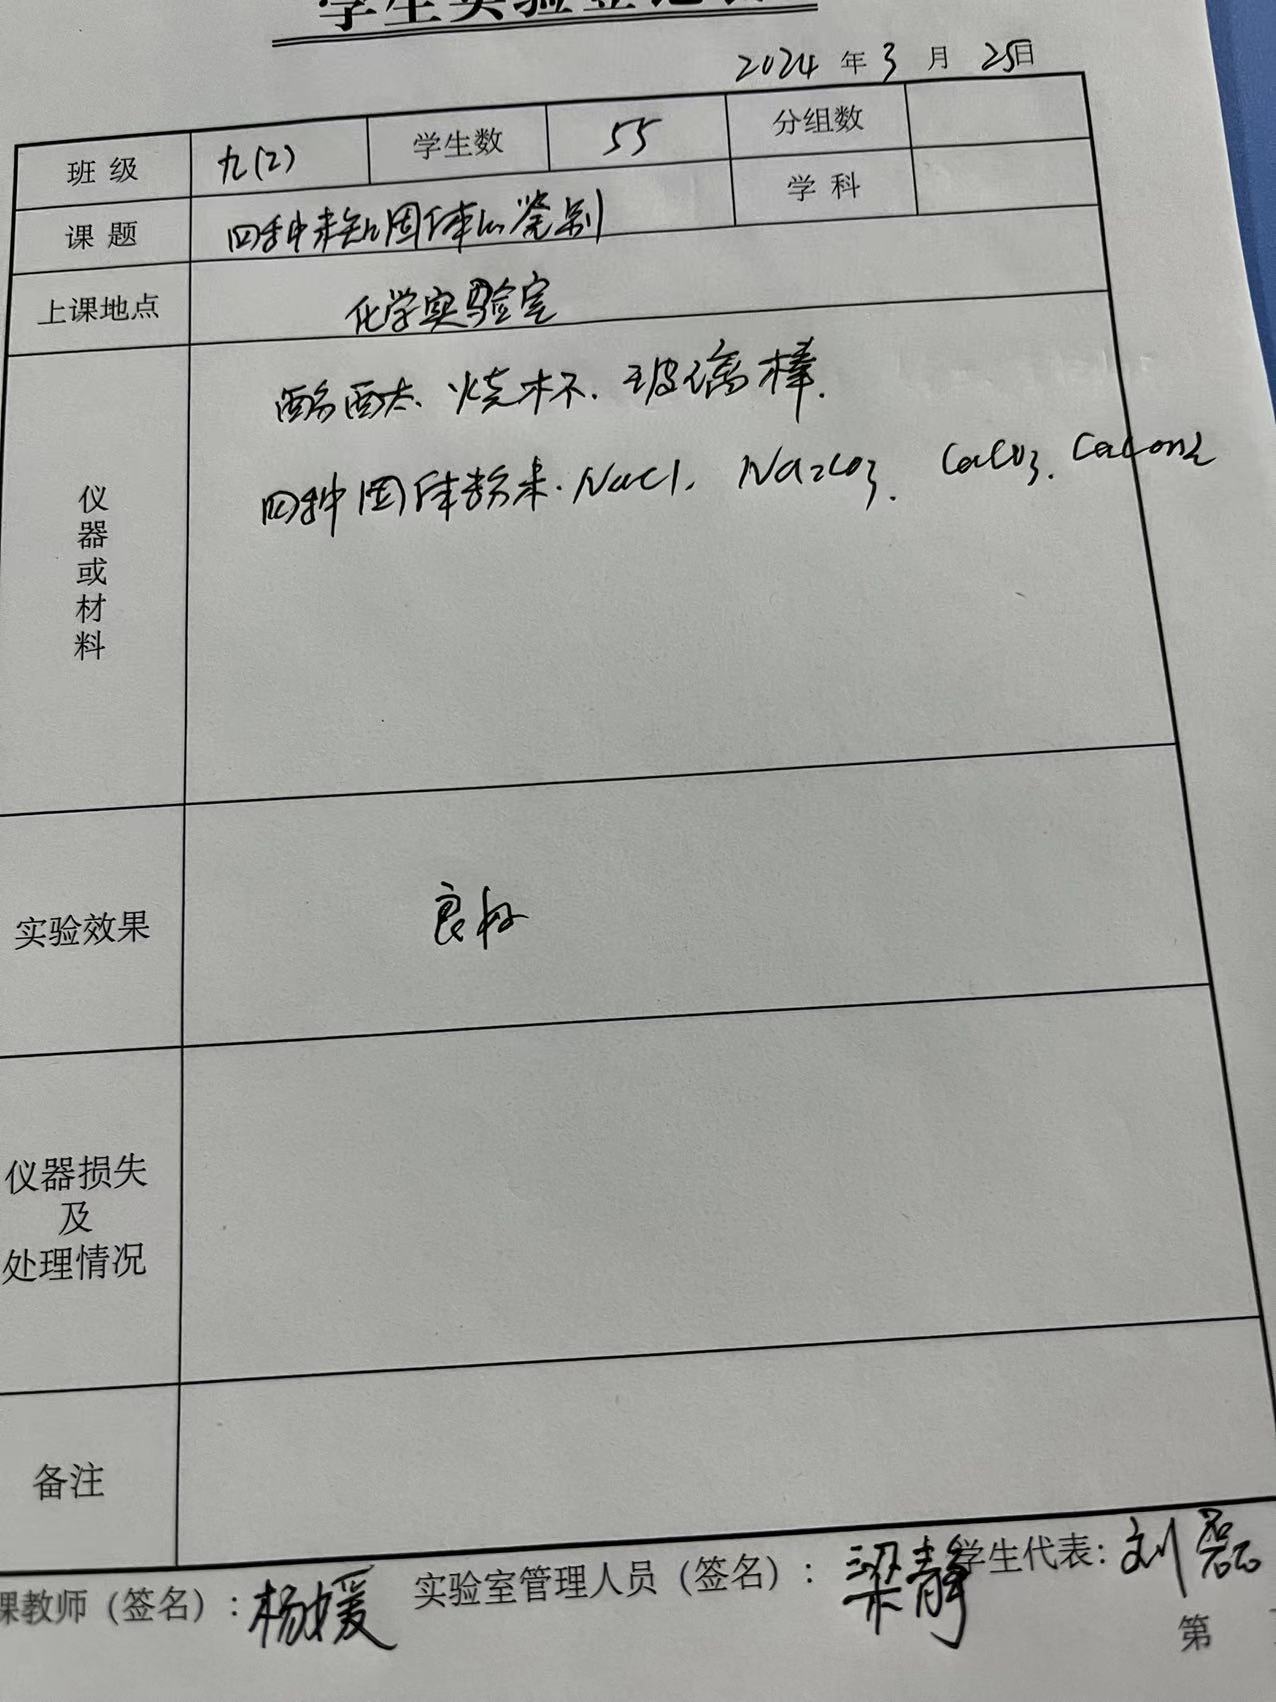 学生实验登记表
2024 年 3 月 25日
班 级 九(2) 学生数 55 分组数
课 题 四种未知固体的鉴别 学 科
上课地点 化学实验室
仪器或材料
酚酞、烧杯、玻璃棒.
四种固体粉末. NaCl、Na2CO3、CaCO3、Ca(OH)2
实验效果 良好
仪器损失
及
处理情况
备注
课教师（签名）：杨媛 实验室管理人员（签名）：梁静 学生代表：刘磊
第